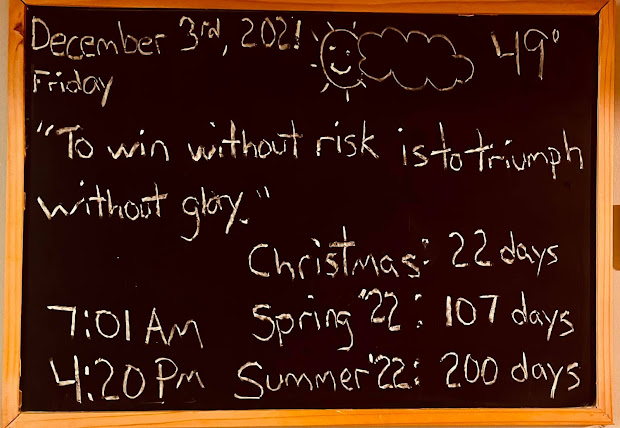 December 3rd, 2021 49°
Friday
"To win without risk is to triumph
without glory."
Christmas: 22 days
7:01 AM Spring '22: 107 days
4:20 PM Summer '22: 200 days